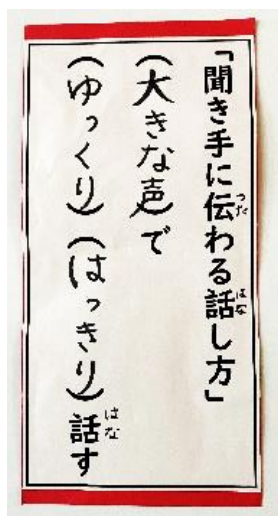 「聞き手に伝わる話し方」
(大きな声)で
(ゆっくり)(はっきり)話す